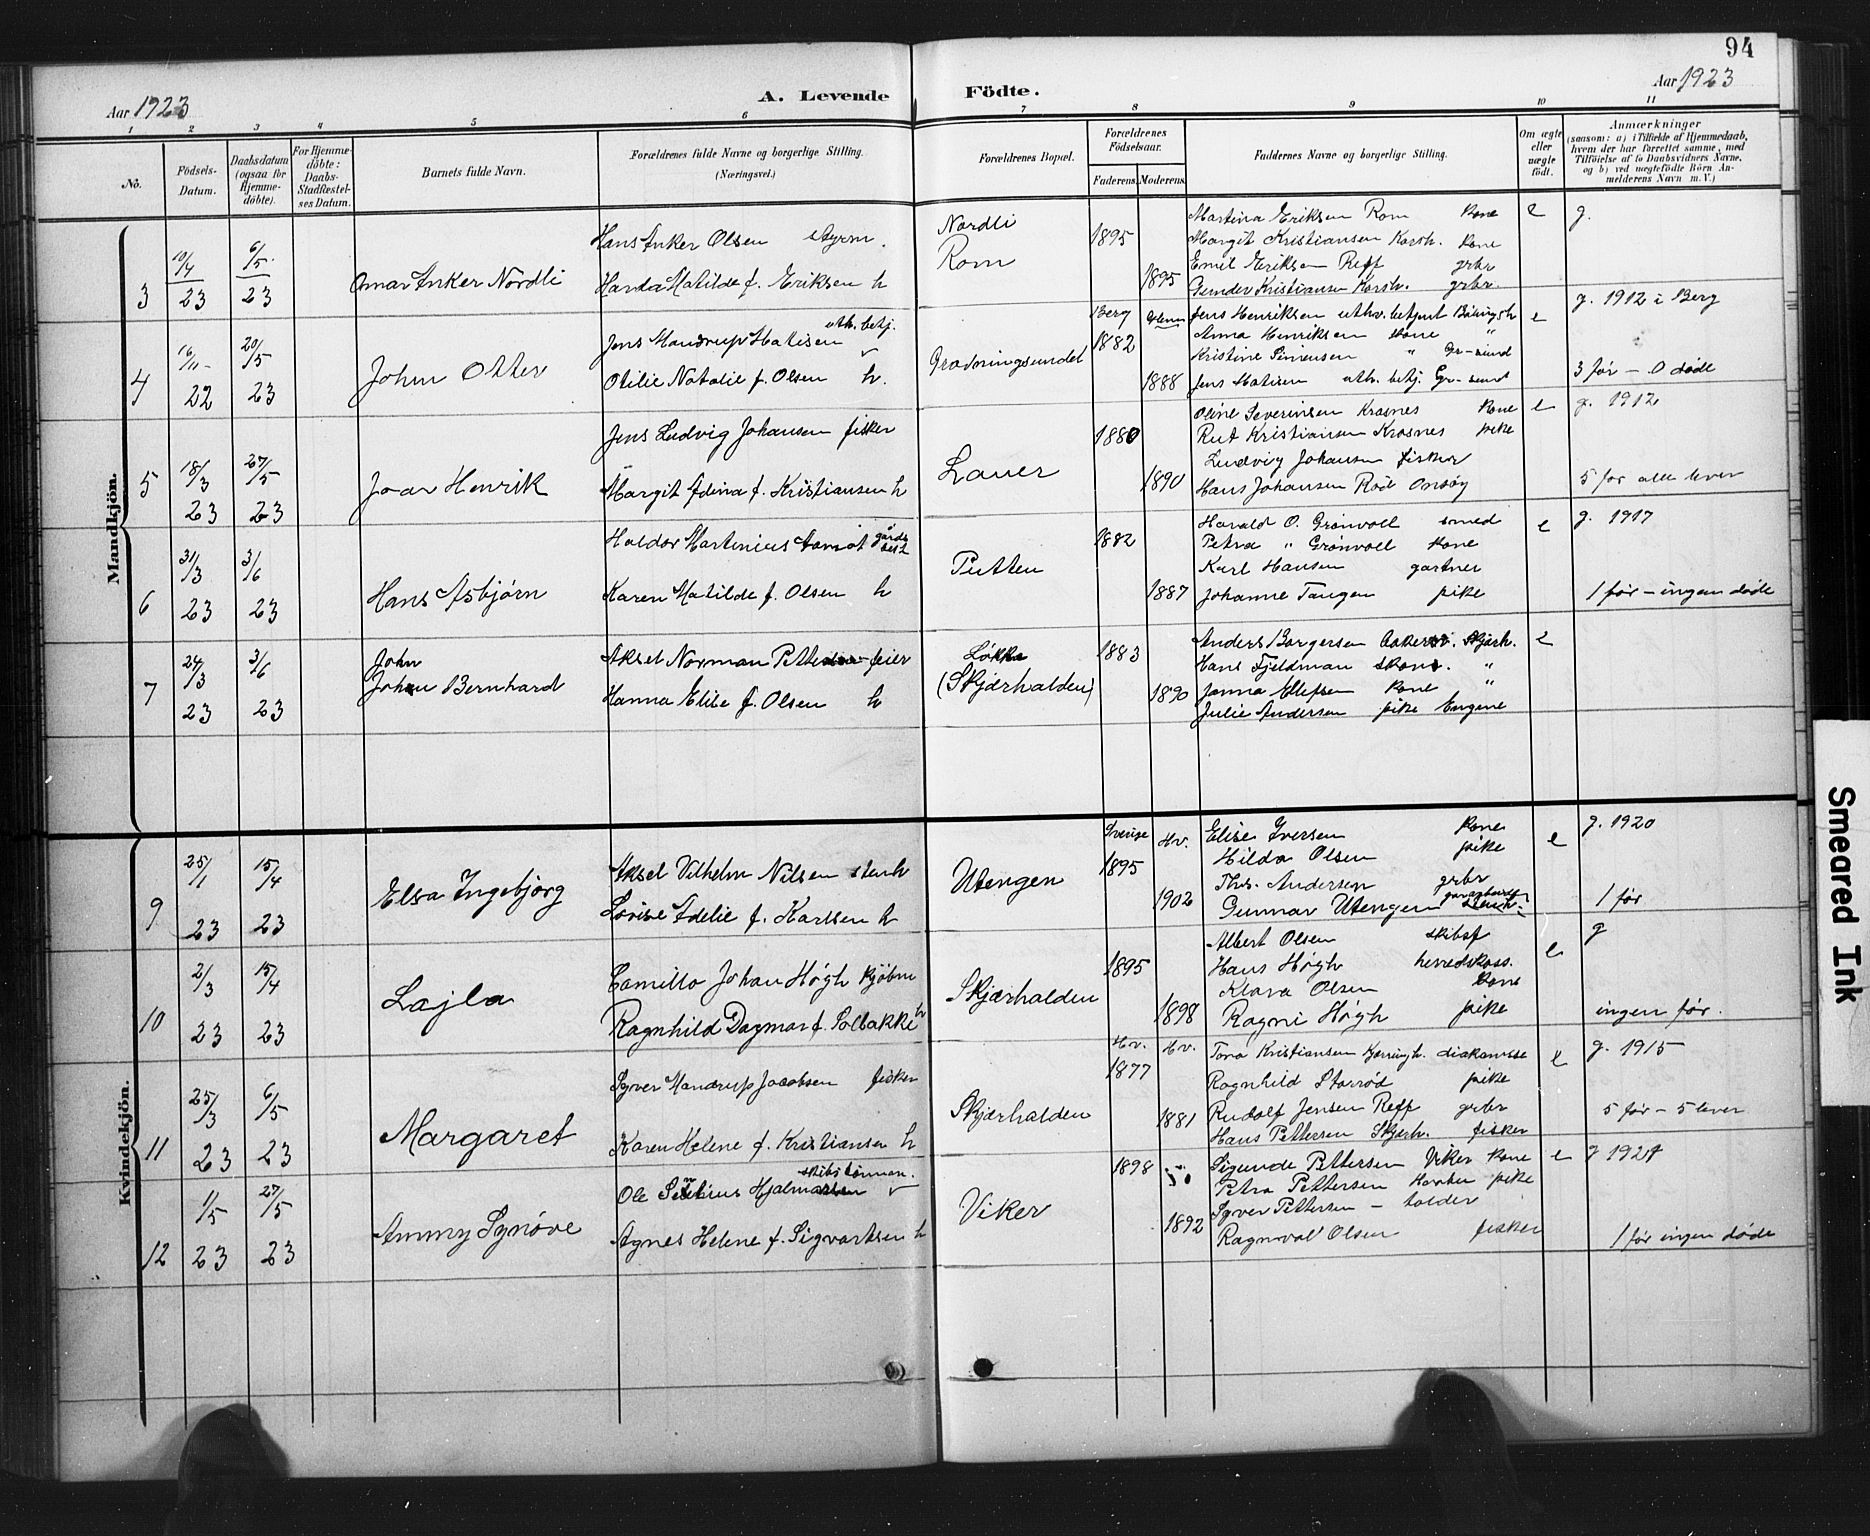 94
Aar 1923
A. Levende Födte.
Aar 1923
1 2 3 4 5 6 7 8 9 10 11
No.
Födsels-
Datum.
Daabsdatum
(ogsaa for
Hjemme-
döbte).
For Hjemme-
döbte:
Daabs-
Stadfæstel-
ses Datum.
Barnets fulde Navn.
Forældrenes fulde Navne og borgerlige Stilling.
(Næringsvei.)
Forældrenes Bopæl.
Forældrenes
Födselsaar.
Faderens.
Moderens.
Faddernes Navne og borgerlige Stilling.
Om ægte
eller
uægte
födt.
Anmærkninger
(saasom: a) i Tilfælde af Hjemmedaab,
hvem der har forrettet samme, med
Tilföielse af to Daabsvidners Navne,
og b) ved uægtefödte Börn An-
melderens Navn m. V.)
Mandkjön.
3
10/4 23
6/5 23
Omar Anker Nordli
Hans Anker Olsen styrm.
Harda Matilde f. Eriksen h
Nordli
Rom
1895
1895
Martina Eriksen Rom kone
Margit Kristiansen Korsh. kone
Emil Eriksen Reff grbr
Gunder Kristiansen Korsh. grbr.
e
g.
4
16/11 22
20/5 23
John Otter
Jens Mandrup Matisen uth. betj.
Otilie Natalie f. Olsen h.
Gravningsundet
Berg
1882
Glemm
1888
Jens Henriksen uthv. betjent
Anna Henriksen kone "
Kristine Simensen " Gr-sund
Jens Matisen uth. betj. Gr-sund
e
g. 1912 i Berg
3 før - 0 døde
5
18/3 23
27/5 23
Joar Henrik
Jens Ludvig Johansen fisker
Margit Adina f. Kristiansen h
Lauer
1880
1890
Oline Severinsen Krosnes kone
Rut Kristiansen Krosnes pike
Ludvig Johansen fisker
Hans Johansen Rød Onsøy
e
g. 1912
5 før alle lever
6
31/3 23
3/6 23
Hans Asbjørn
Haldor Martinius gårdbest
Karen Matilde f. Olsen h
Putten
1882
1887
Harald O. Grønvoll smed
Petra " Grønvoll kone
Karl Hansen gartner
Johanne Tangen pike
e
g. 1917
1 før - ingen døde
7
24/3 23
3/6 23
John
Johan Bernhard
Aksel Norman feier
Hanna Elise f. Olsen h
Løkka
(Skjærhalden)
1883
1890
Anders Borgersen Skjærh.
Hans Fjeldman "
Janna Ellefsen kone "
Julie Andersen pike Engene
e
Kvindekjön.
9
25/1 23
15/4 23
Elsa Ingebjørg
Aksel Vilhelm Nilsen stenh
Lovise Adelie f. Karlsen h
Utengen
Sverige
1895
Hv.
1902
Elise Iversen kone
Hilda Olsen pike
Ths. Andersen grbr
Gunnar Utengen
e
g. 1920
1 før
10
2/3 23
15/4 23
Lajla
Camillo Johan Høgh kjøbm
Ragnhild Dagmar f. Solbakke h
Skjærhalden
1895
1898
Albert Olsen skibsf
Hans Høgh herredskass.
Klara Olsen kone
Ragni Høgh pike
e
g
ingen før.
11
25/3 23
6/5 23
Margaret
Syver Mandrup Jacobsen fisker
Karen Helene f. Kristiansen h
Skjærhalden
Hv.
1877
Hv.
1881
Tora Kristiansen Kjerringh. diakonisse
Ragnhild Storrød pike
Rudolf Jensen Reff grbr
Hans Pettersen Skjærh. fisker
e
g. 1915
5 før - 5 lever
12
1/5 23
27/5 23
Ammy Synøve
Ole Hjalmarsen skibstømman.
Agnes Helene f. Sigvartsen h
Viker
1898
1892
Sigunde Pettersen Viker kone
Petra Pettersen pike
Syver Pettersen - tolder
Ragnval Olsen fisker
e
g 1921
1 før ingen døde
Smeared Ink